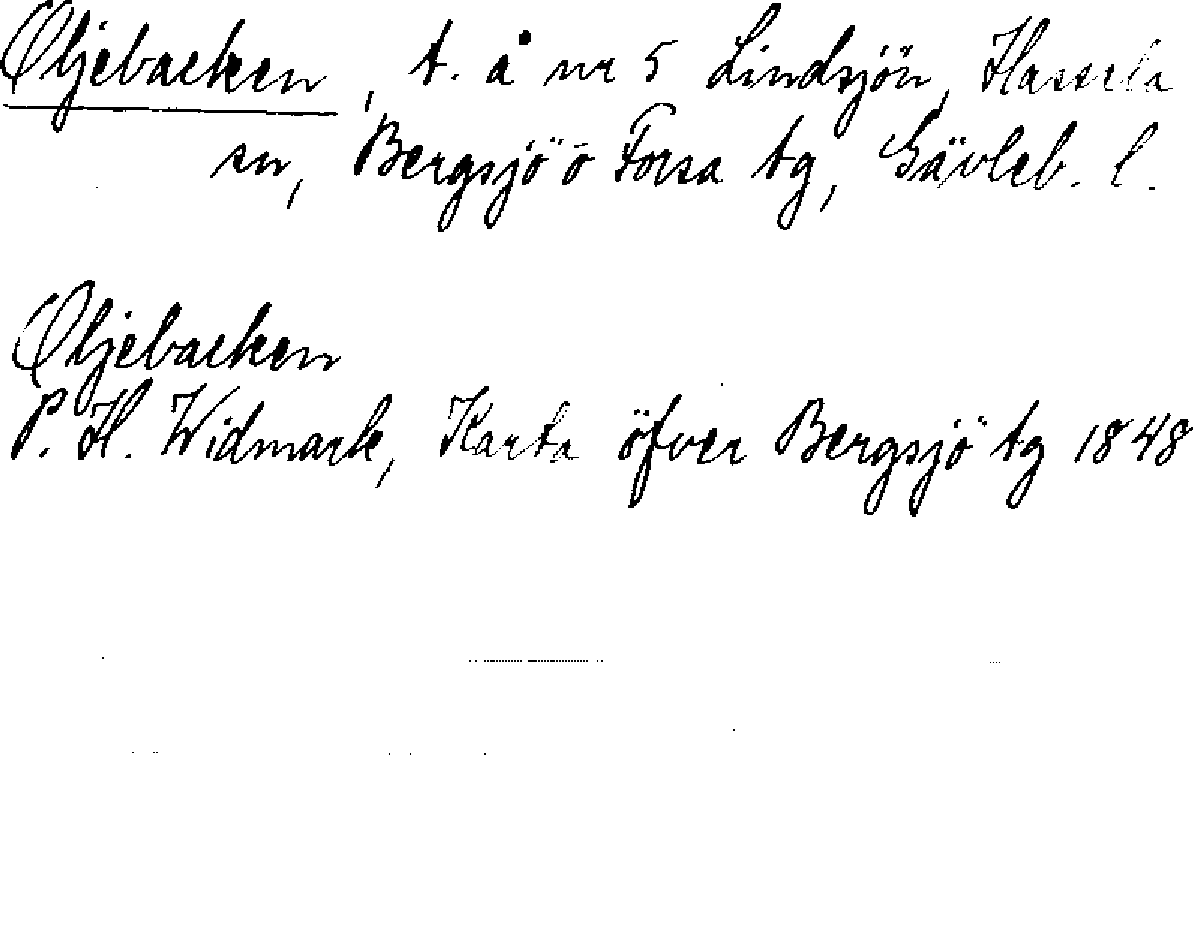 Oljebacken, t. å nr 5 Lindsjön, Hassela
sn, Bergsjö o Forsa tg, Gävleb. l.
Oljebacken
P. H. Widmark, Karta öfver Bergsjö tg 1848